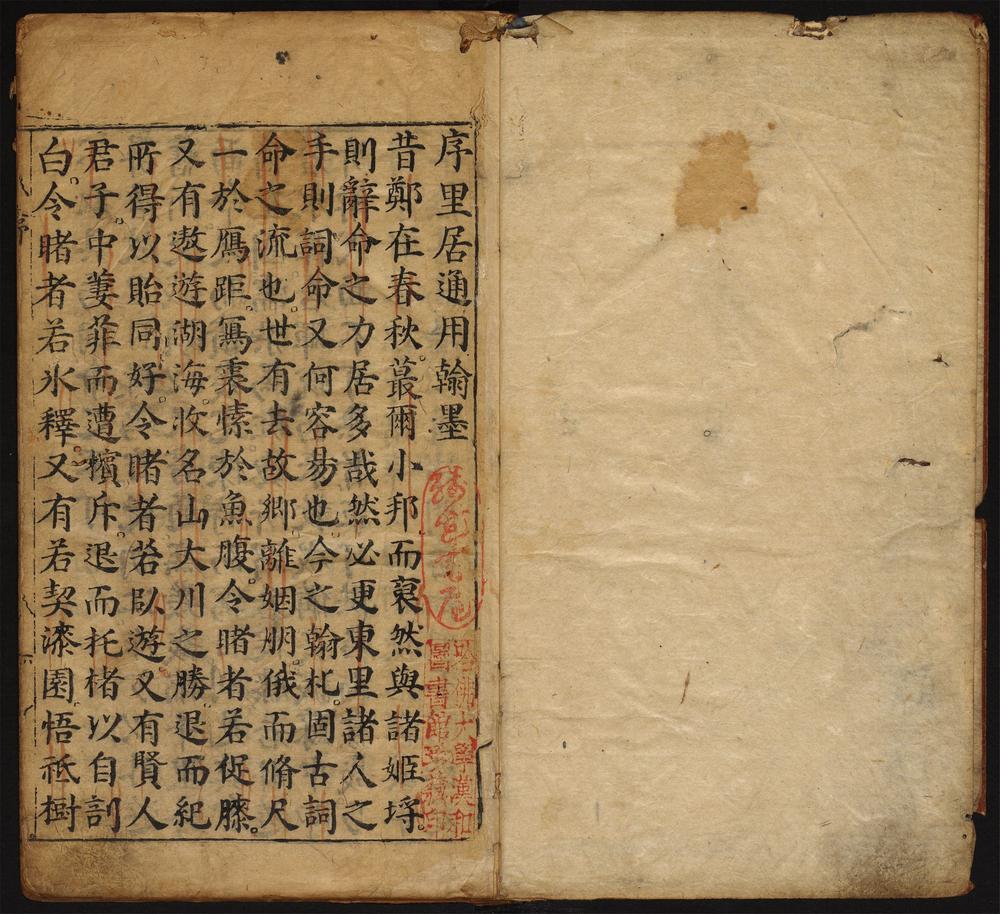 序里居通用翰墨
昔鄭在春秋。蕞爾小邦而裒然與諸姬埒。
則辭命之力居多哉然必更東里諸人之
手則詞命又何容易也。今之翰札。固古詞
命之流也。世有去故鄉離姻朋。俄而脩尺
一於鴈距。寫裏愫於魚腹。令睹者若促膝。
又有遨遊湖海。收名山大川之勝。退而紀
所得以貽同好。令睹者若臥遊。又有賢人
君子。中萋菲而遭擯斥。退而托楮以自訓
白。令睹者若氷釋。又有若契漆園悟祗樹
序
哈佛大學漢和
圖書館珍藏印